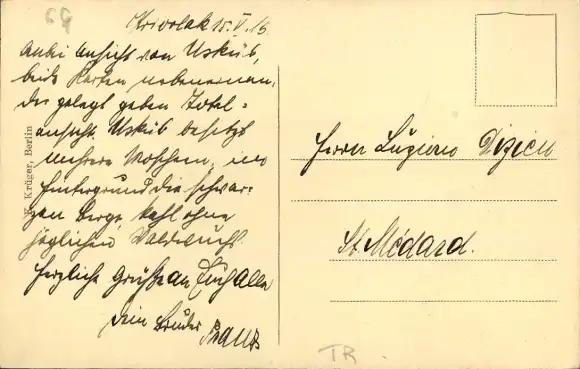 69
Krivolak 15.V.16
Anbei Ansicht von Usküb,
beide Karten nebeneinan-
der gelegt geben Total-
ansicht. Usküb besitzt
mehrere Moscheen, im
Hintergrund die schwar-
zen Berge, kahl ohne
jeglichen Waldwuchs.
Herzliche Grüße an Euch Alle
Dein Bruder Franz
K. Krüger, Berlin
Herrn
St. Médard.
TR.